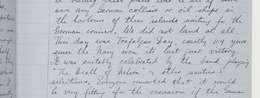 see any German colliers or oil ships in
the harbours of these islands waiting for the
German cruisers. We did not land at all.
This day was Trafalgar Day, exactly 109 years
since the Navy won its last great victory.
It was suitably celebrated by the band playing
"The Death of Nelson" & other suitable
selections. Everyone remarked that it would
be very fitting for the occasion if the